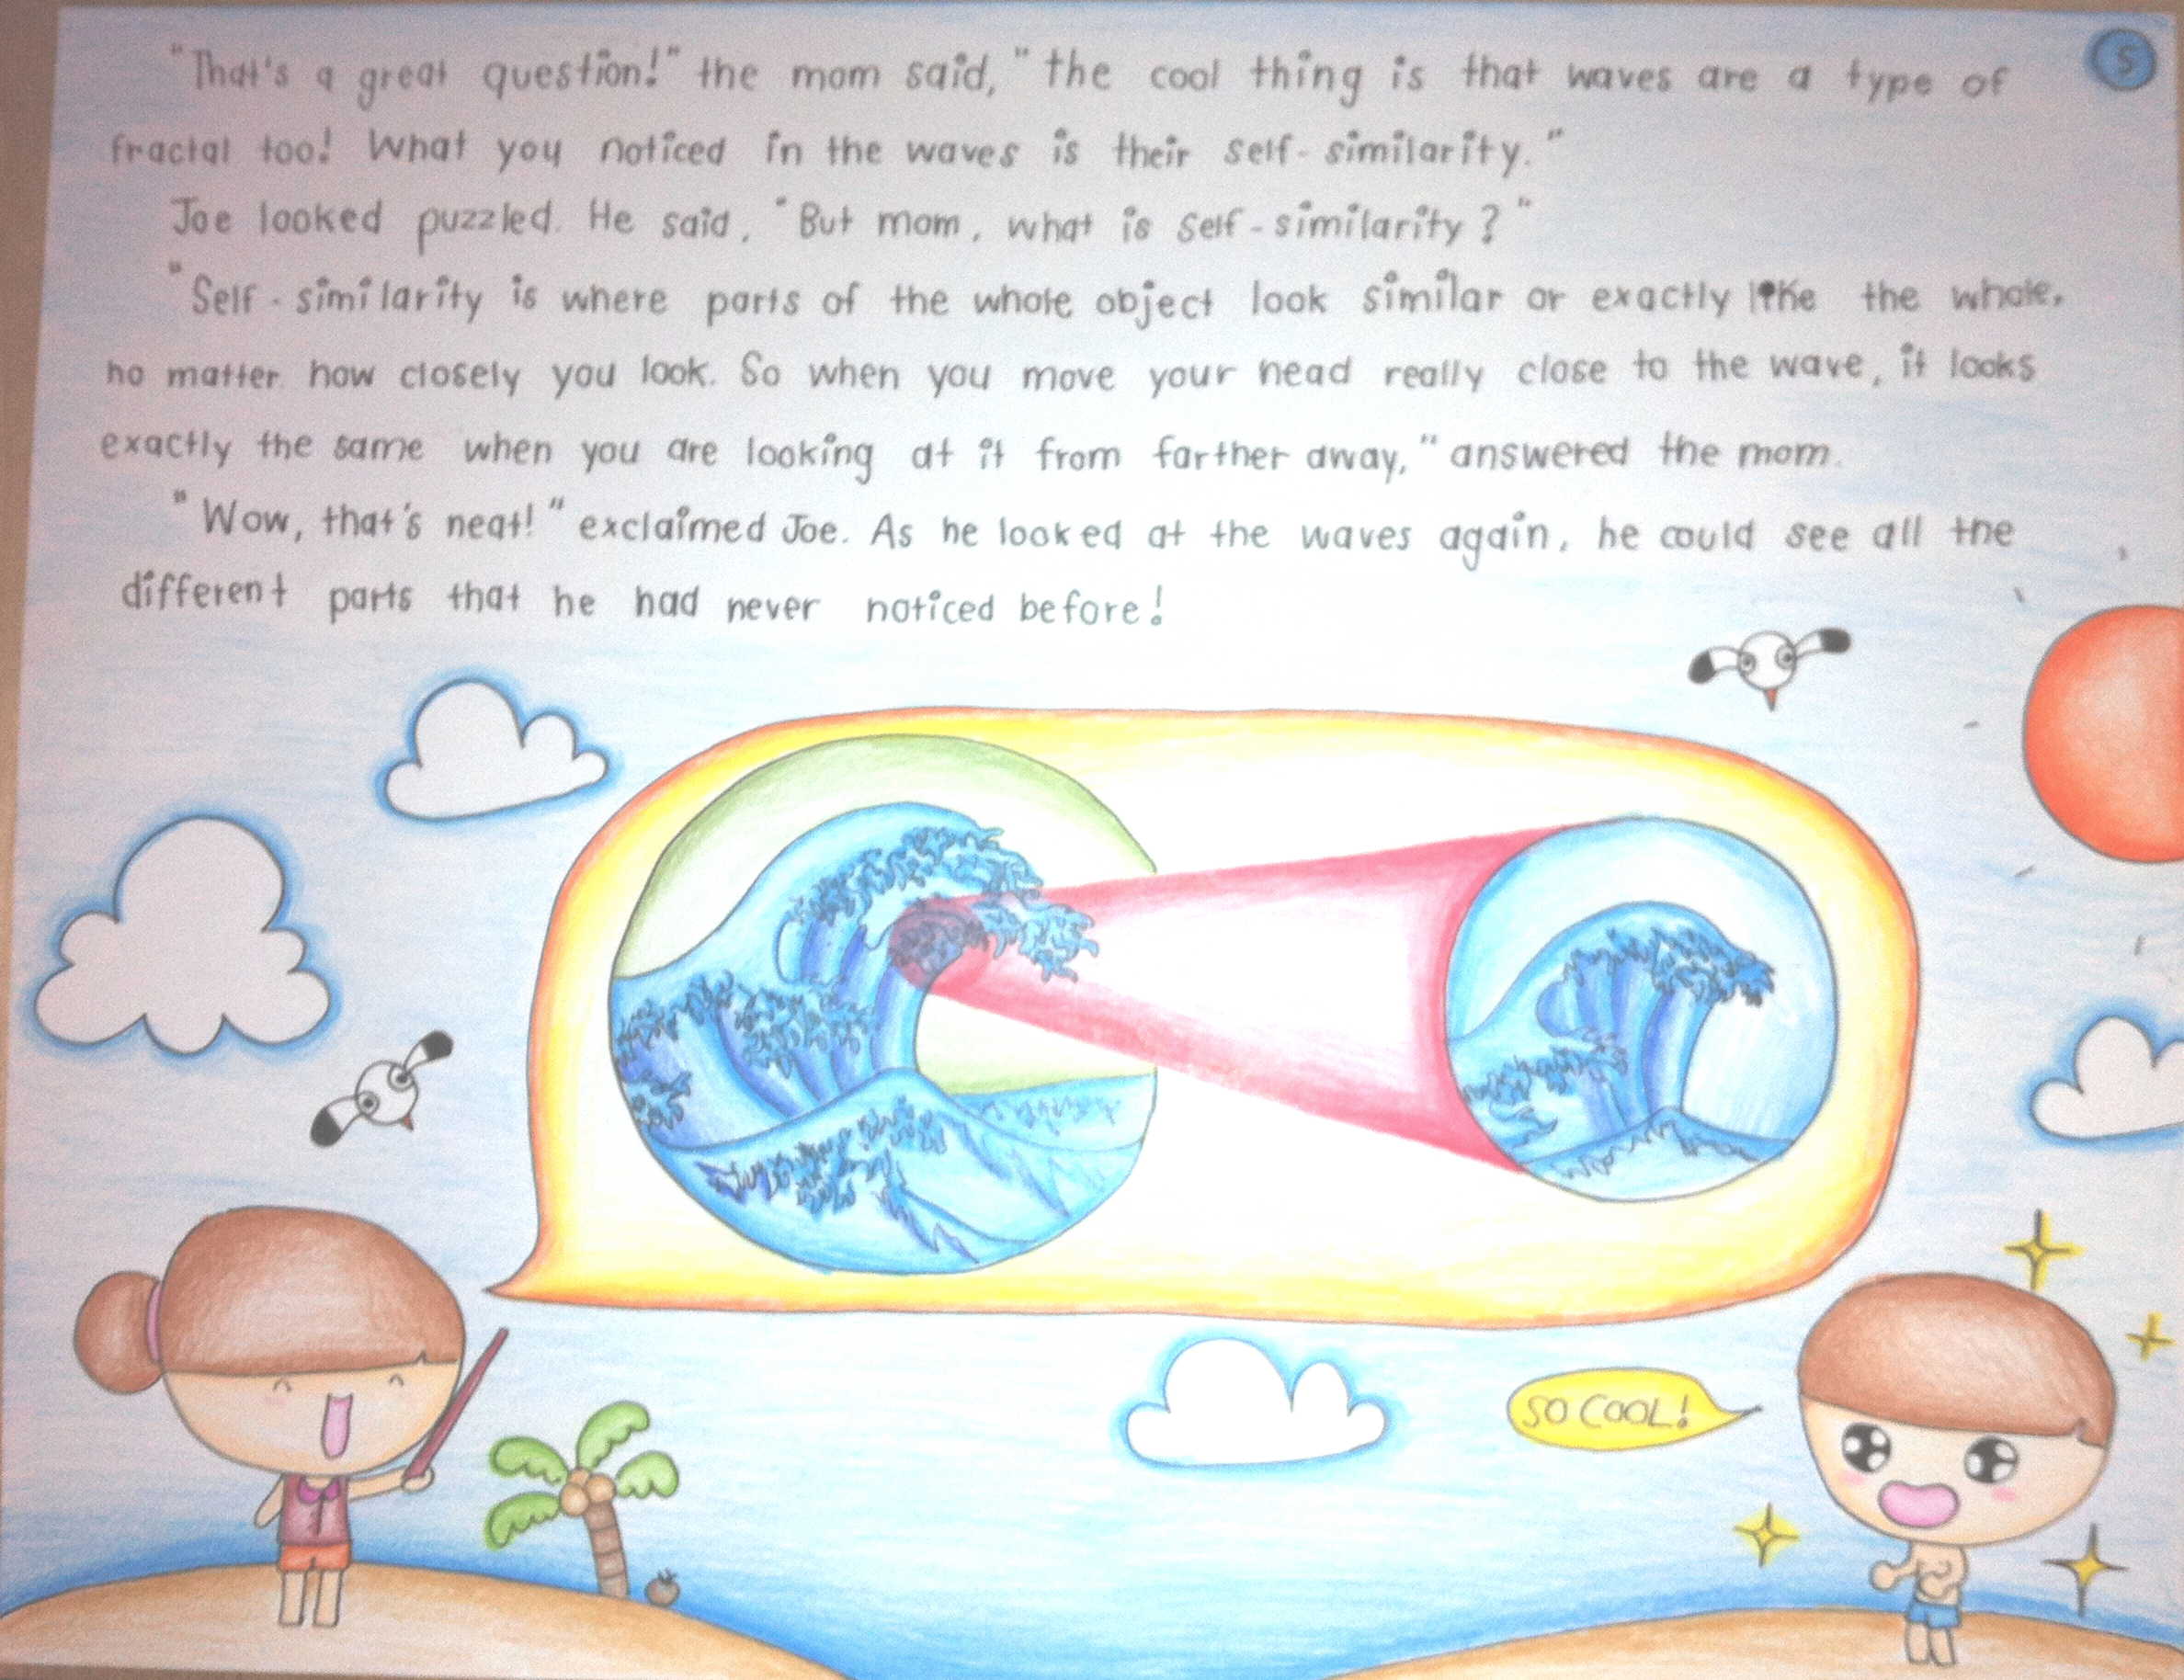 5
"That's a great question!" the mom said, "the cool thing is that waves are a type of
fractal too! What you noticed in the waves is their self-similarity."
Joe looked puzzled. He said, "But mom, what is self-similarity?"
"Self-similarity is where parts of the whole object look similar or exactly like the whole,
no matter how closely you look. So when you move your head really close to the wave, it looks
exactly the same when you are looking at it from farther away," answered the mom.
"Wow, that's neat!" exclaimed Joe. As he looked at the waves again, he could see all the
different parts that he had never noticed before!
SO COOL!